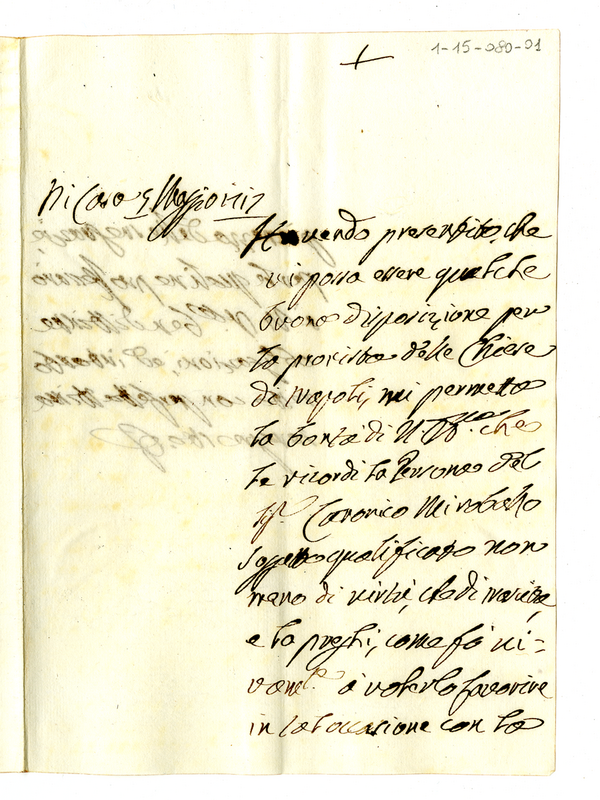 1-15-080-01
Di Casa 5 Maggio 1717
Havendo presentito, che
vi possa essere qualche
buona disposizione per
la provista delle Chiese
di Napoli, mi permetta
la bontà di che
le ricordi la Persona del
Sig.r Canonico Mirabello
soggetto qualificato non
meno di virtù, che di nascita,
e la preghi, come fò vi=
vam.te à volerlo favorire
in tal occasione con la